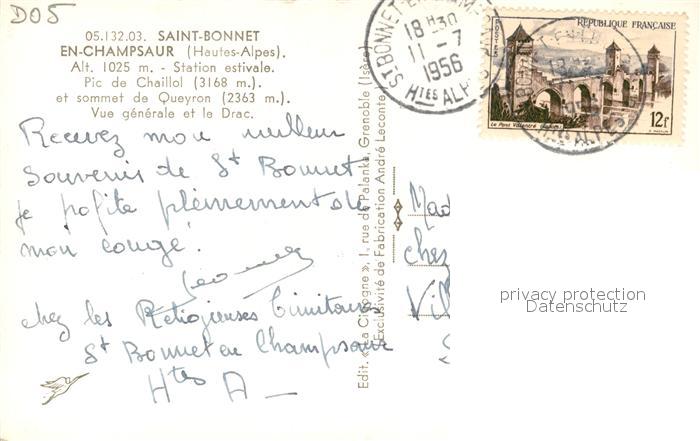 D05
05.132.03. SAINT-BONNET
EN-CHAMPSAUR (Hautes-Alpes).
Alt. 1025 m. - Station estivale.
Pic de Chaillol (3168 m.).
et sommet de Queyron (2363 m.).
Vue générale et le Drac.
Recevez mon meilleur
souvenir de St Bonnet
je profite pleinement de
mon congé.
chez les Religieuses Trinitaires
St Bonnet en Champsaur
Htes A
Edit. « La Cigogne », 1, rue de Palanka, Grenoble (Isère)
Exclusivité de Fabrication André Leconte
ST BONNET-EN-CHAMP
18 H 30
11 - 7
1956
Htes ALPES
RÉPUBLIQUE FRANÇAISE
POSTES
Le Pont Valentré
12f
Mad
chez
Vill
privacy protection
Datenschutz